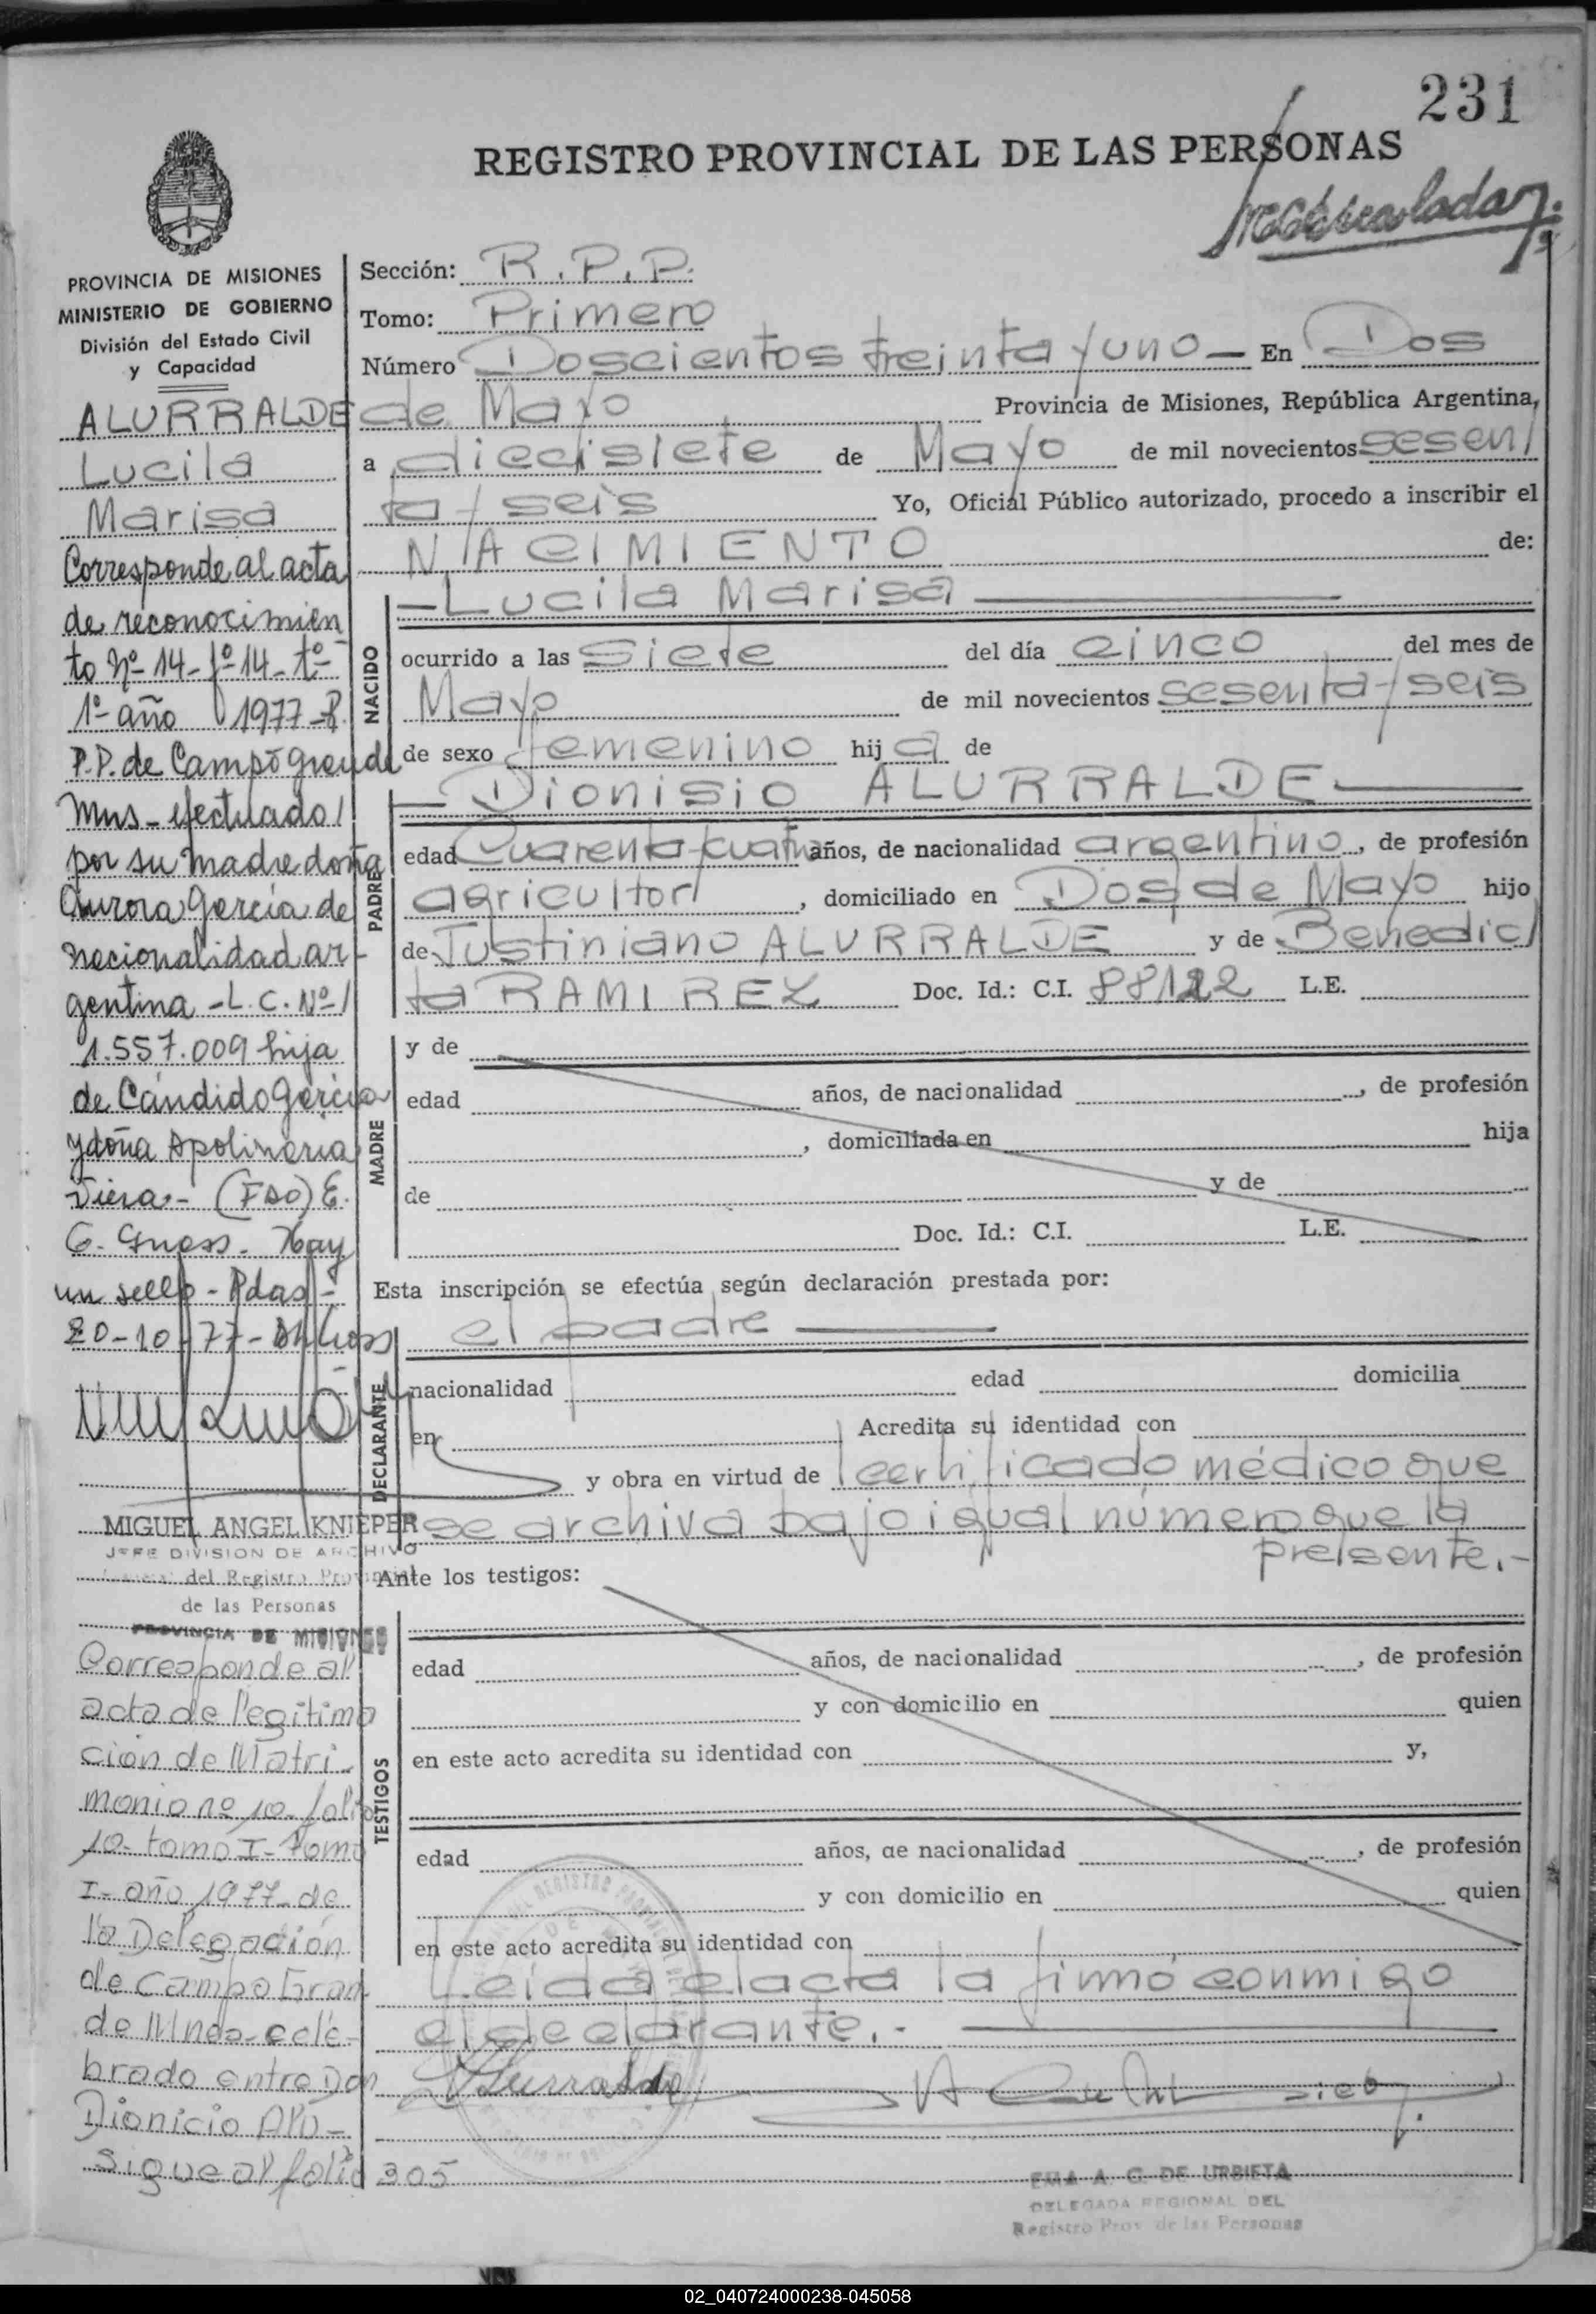 231
REGISTRO PROVINCIAL DE LAS PERSONAS
PROVINCIA DE MISIONES
MINISTERIO DE GOBIERNO
División del Estado Civil
y Capacidad
ALURRALDE
Lucila
Marisa
Corresponde al acta
de reconocimien
to Nº 14-fº 14-tº
1º año 1977-R.
P.P. de Campo grande
Mns- efectuado/
por su madre doña
Aurora García de
nacionalidad ar-
gentina - L.C. Nº/
1.557.009 hija
de Cándido García
y doña Apolinaria
Viera.- (FDO) E.
G. Hay
un sello - Pdas -
20-10-77-
MIGUEL ANGEL KNIEPER
JEFE DIVISION DE ARCHIVO
General del Registro Provincial
de las Personas
PROVINCIA DE MISIONES
Corresponde al
acta de legitima
cion de Matri-
monio nº 10-folio
10-tomo I-Tomo
I-año 1977-de
la Delegación
de Campo Gran
de Mnes-cele-
brado entre Don
Dionicio Alu-
sigue al folio 305
Sección: R.P.P.
Tomo: Primero
Número Doscientos treinta y uno — En Dos
de Mayo Provincia de Misiones, República Argentina,
a diecisiete de Mayo de mil novecientos sesen/
ta y seis Yo, Oficial Público autorizado, procedo a inscribir el
NACIMIENTO de:
NACIDO
—Lucila Marisa—
ocurrido a las siete del día cinco del mes de
Mayo de mil novecientos sesenta y seis
de sexo femenino hija de
PADRE
—Dionisio ALURRALDE—
edad Cuarenta y cuatro años, de nacionalidad argentino, de profesión
agricultor, domiciliado en Dos de Mayo hijo
de Justiniano ALURRALDE y de Benedic/
ta RAMIREZ Doc. Id.: C.I. 88122 L.E.
MADRE
y de
edad años, de nacionalidad , de profesión
, domiciliada en hija
de y de
Doc. Id.: C.I. L.E.
Esta inscripción se efectúa según declaración prestada por:
DECLARANTE
el padre —
nacionalidad edad domicilia
en Acredita su identidad con
y obra en virtud de certificado médico que
se archiva bajo igual número que la
presente.-
Ante los testigos:
TESTIGOS
edad años, de nacionalidad , de profesión
y con domicilio en quien
en este acto acredita su identidad con y,
edad años, de nacionalidad , de profesión
y con domicilio en quien
en este acto acredita su identidad con
Leída el acta la firmó conmigo
el declarante.-
Alurralde
EMA A. G. DE URBIETA
DELEGADA REGIONAL DEL
Registro Prov. de las Personas
02_040724000238-045058